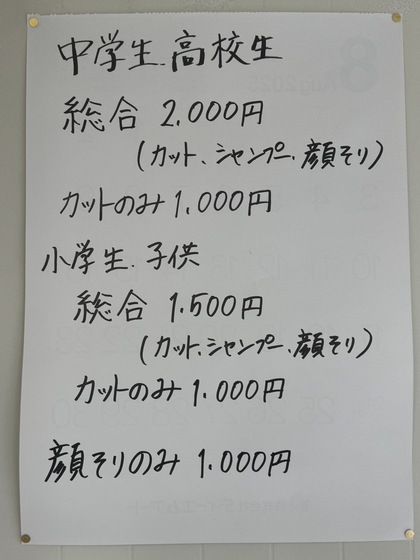 中学生.高校生
総合 2.000円
(カット、シャンプー、顔そり)
カットのみ 1.000円
小学生.子供
総合 1.500円
(カット、シャンプー、顔そり)
カットのみ 1.000円
顔そりのみ 1.000円